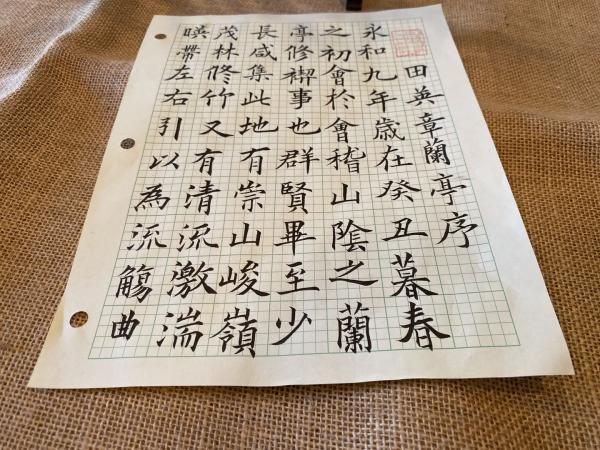 田英章蘭亭序
永和九年歲在癸丑暮春
之初會於會稽山陰之蘭
亭修禊事也群賢畢至少
長咸集此地有崇山峻嶺
茂林修竹又有清流激湍
暎帶左右引以為流觴曲